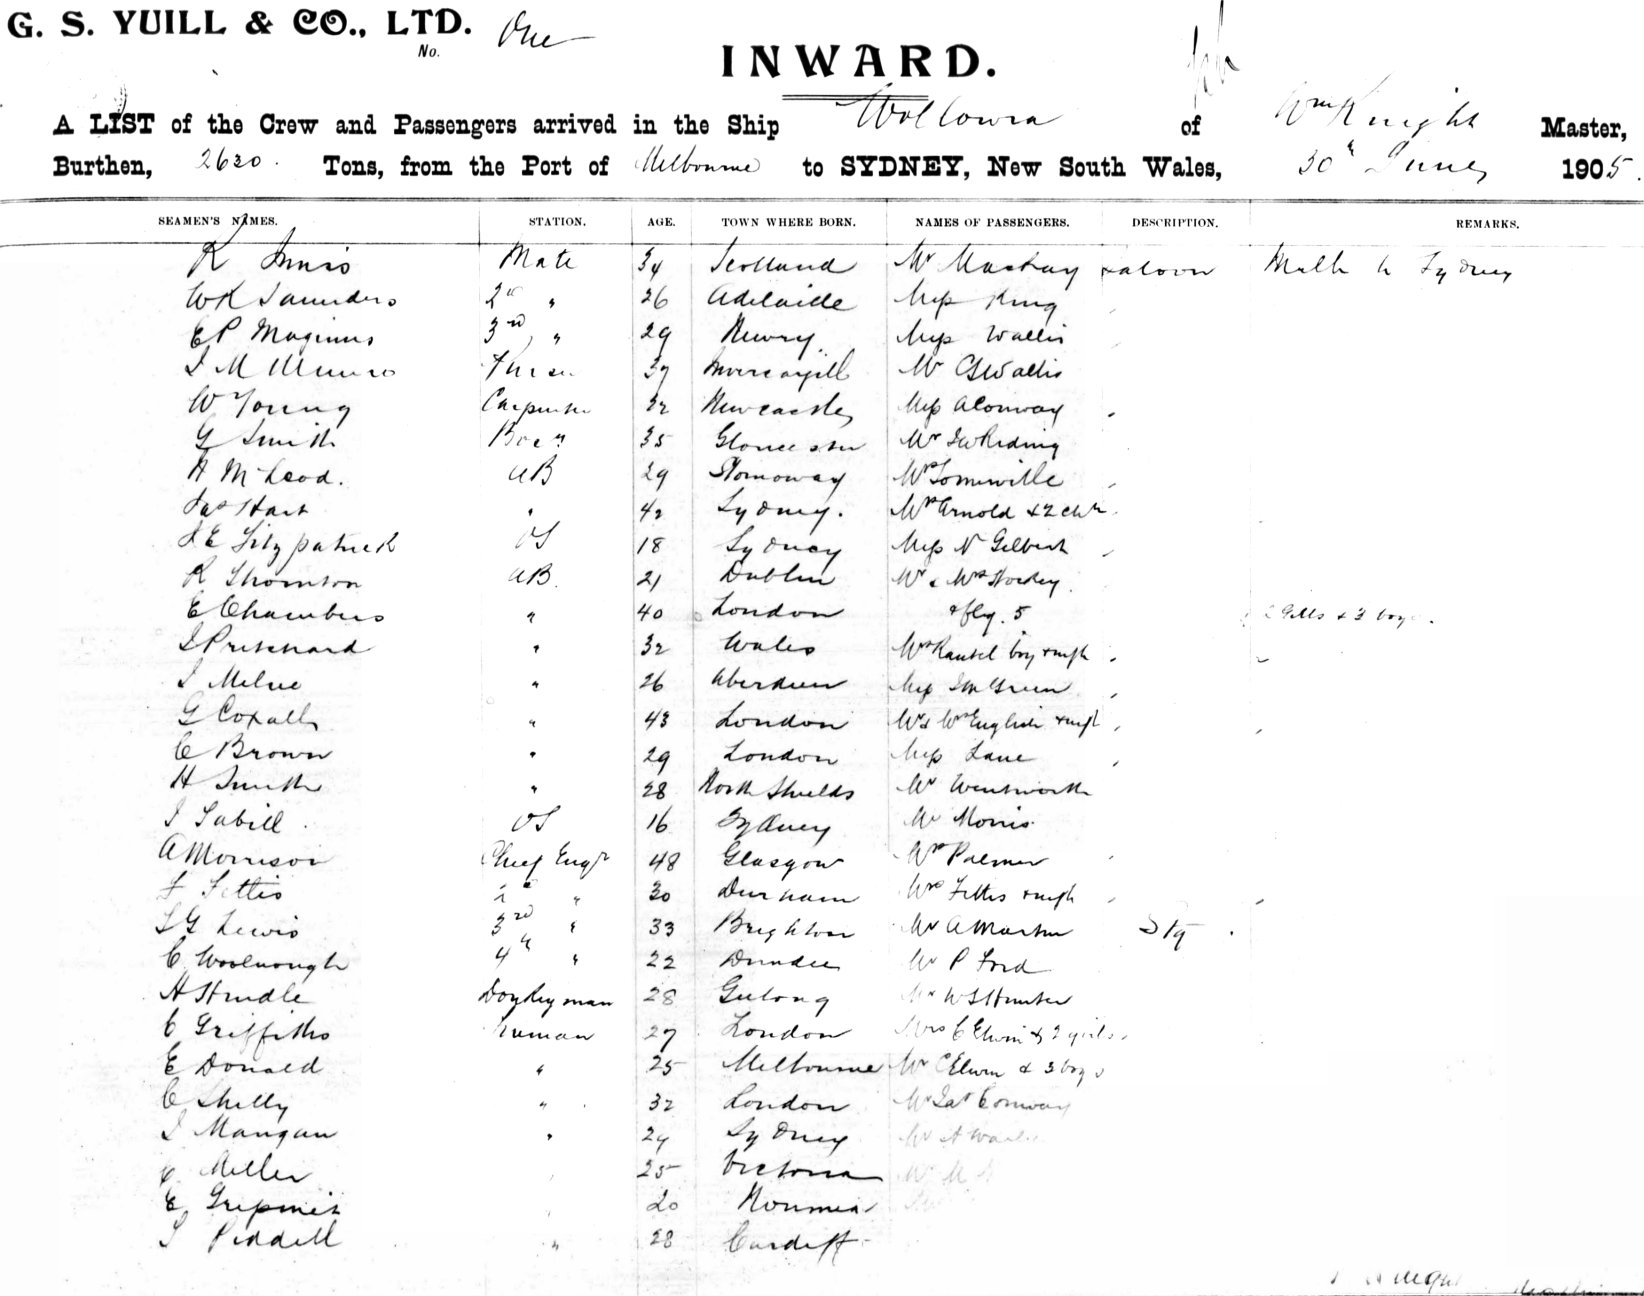 G. S. YUILL & CO., LTD. One
No.
INWARD.
A LIST of the Crew and Passengers arrived in the Ship Wollowra of Wm Knight Master,
Burthen, 2630. Tons, from the Port of Melbourne to SYDNEY, New South Wales, 30th June, 1905.
SEAMEN'S NAMES. STATION. AGE. TOWN WHERE BORN. NAMES OF PASSENGERS. DESCRIPTION. REMARKS.
R Innis Mate 34 Scotland Mr Mackay Saloon Melb to Sydney
WR Saunders 2nd " 26 Adelaide Miss King
EP Maginnis 3rd " 29 Newry. Miss Wallis
J M Munro Purser 37 Invercargill Mr Wallis
W Young Carpenter 32 Newcastle Miss A Conway
G Smith Bosn 35 Gloucester Mr Reding
A McLeod. AB 29 Stornoway Mrs Somerville
Jas Hart " 42 Sydney. Mrs Arnold & 2 chn
J E Fitzpatrick OS 18 Sydney Miss N Gilbert
R Thornton AB. 21 Dublin Mr & Mrs
E Chambers " 40 London & fly. 5 2 Girls & 3 boys.
J Pritchard " 32 Wales Mrs boy & infh
J Milne " 26 Aberdeen Miss Green
G Coxall " 43 London Mr & Mrs English & infh
C Brown " 29 London Miss Lane
H Smith " 28 North Shields Mr Wentworth
J OS 16 Sydney Mr Morris
A Morrison Chief Engr 48 Glasgow Mrs Palmer
F Fettis 2nd " 30 Durham Mrs Fettis & infh
Lewis 3rd " 33 Brighton Mr A Martin Stg
C Woolnough 4th " 22 Dundee Mr P Ford
H Hindle Donkeyman 28 Geelong Mr Hunter
C Griffiths Fireman 27 London Mrs C Elwin & 2 girls
E Donald " 25 Melbourne Mr C Elwin & 3 boys
C Shelly " 32 London Mr Jas Conway
J Mangan " 24 Sydney Mr A
C Miller 25 Victoria Mr M
E 20 Noumea
J Piddell " 28 Cardiff